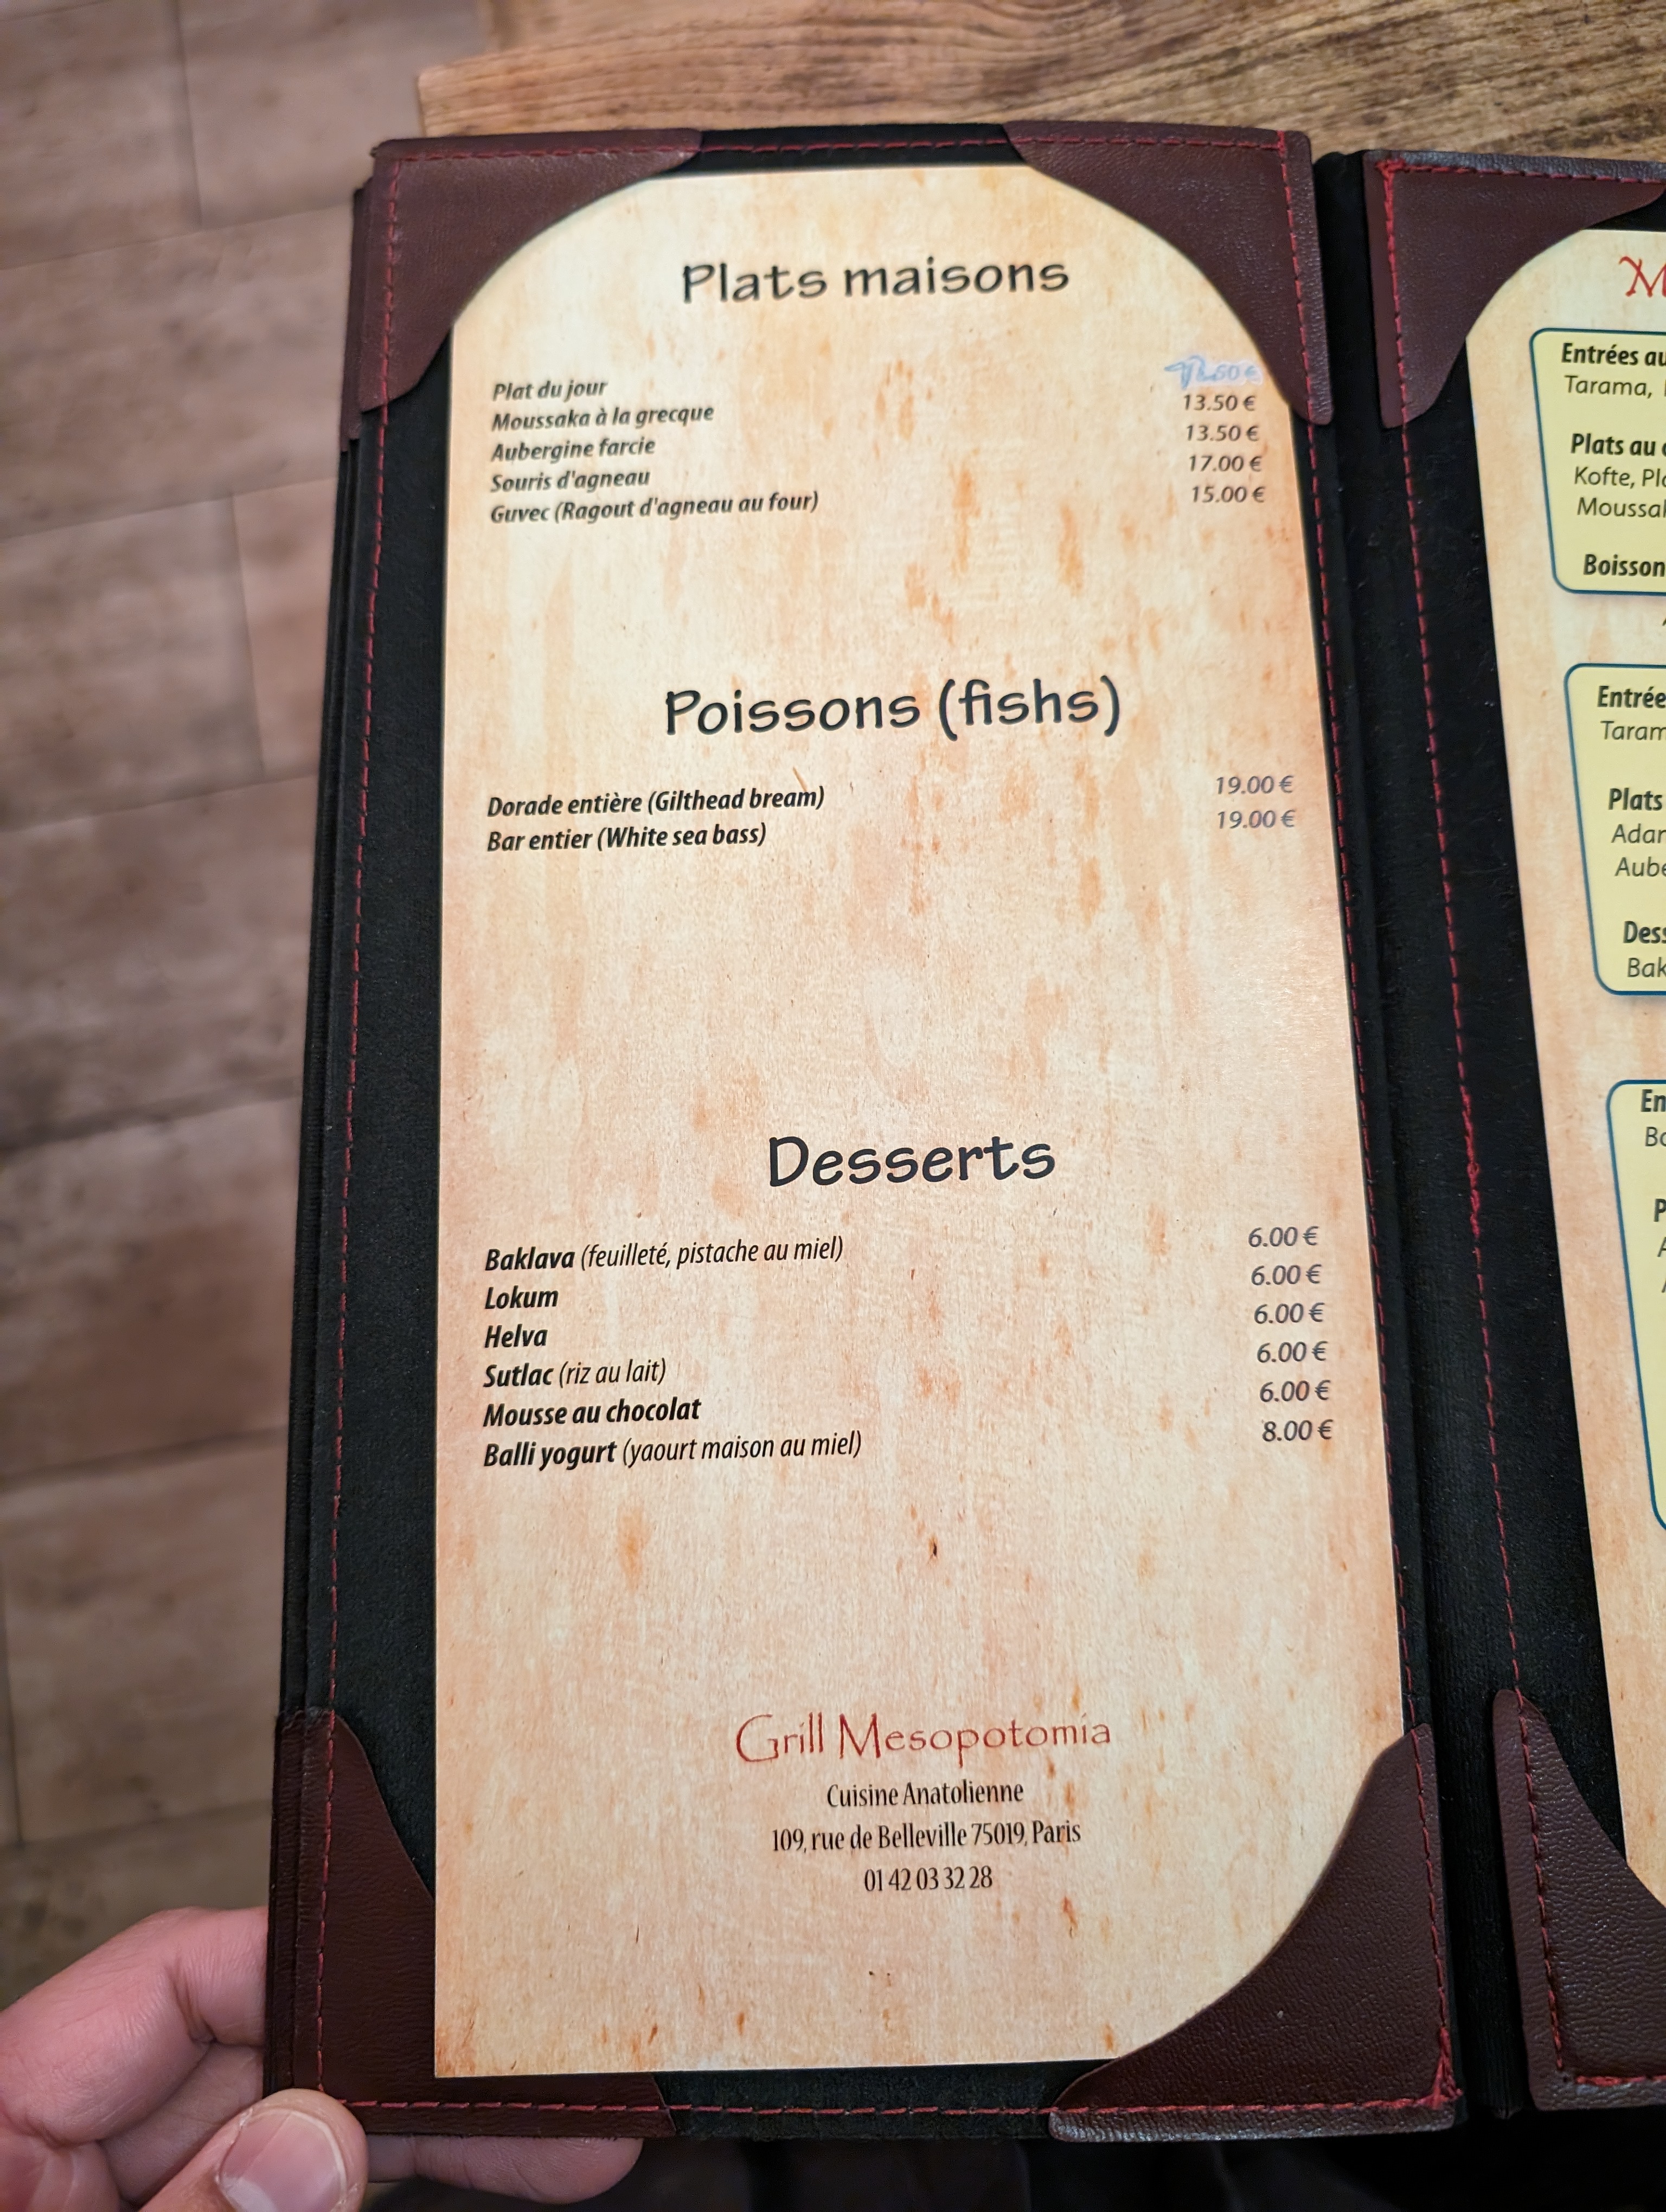 Plats maisons
Plat du jour
Moussaka à la grecque 13.50 €
Aubergine farcie 13.50 €
Souris d'agneau 17.00 €
Guvec (Ragout d'agneau au four) 15.00 €
Poissons (fishs)
Dorade entière (Gilthead bream) 19.00 €
Bar entier (White sea bass) 19.00 €
Desserts
Baklava (feuilleté, pistache au miel) 6.00 €
Lokum 6.00 €
Helva 6.00 €
Sutlac (riz au lait) 6.00 €
Mousse au chocolat 6.00 €
Balli yogurt (yaourt maison au miel) 8.00 €
Grill Mesopotomia
Cuisine Anatolienne
109, rue de Belleville 75019, Paris
01 42 03 32 28
Entrées au
Tarama,
Plats au
Kofte,
Boisson
Plats